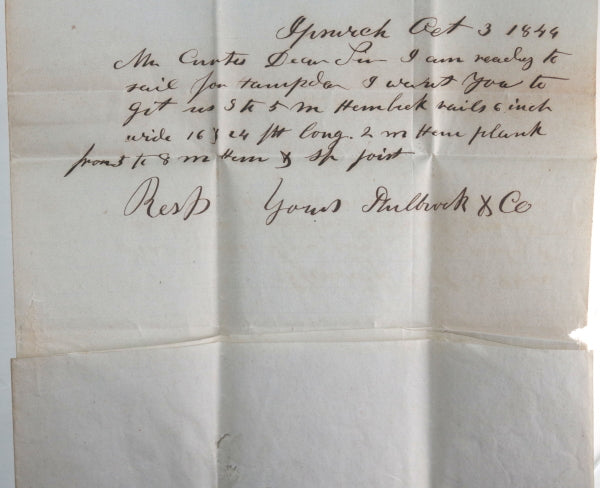 Ipswich Oct 3 1844
Mr Curtis Dear Sir I am ready to
sail for Hampden I want You to
get us 3 to 5 m Hemlock rails 6 inch
wide 16 & 24 ft long. 2 m Hem plank
from 5 to 8 m Hem & Sp joist
Resp Yours & Co